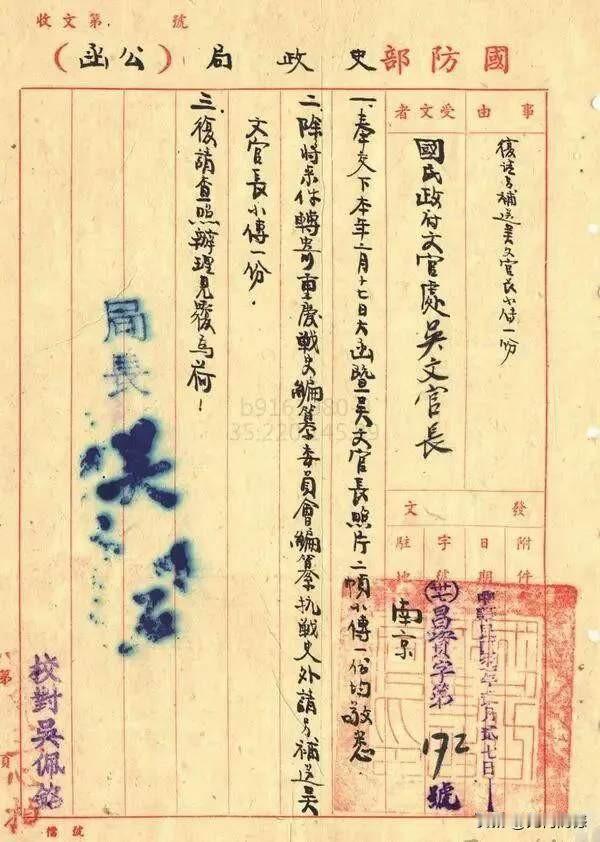 收文第 號
國防部史政局（公函）
事由
復請另補送吳文官長小傳一份
受文者
國民政府文官處吳文官長
發文
附件
日期
中華民國卅七年 月貳七日
字號
(卅七)昌資字第172號
駐地
南京
一、奉交下本年二月十七日大函暨吳文官長照片二幀小傳一份均敬悉
二、除將來件轉寄重慶戰史編纂委員會編纂抗戰史外請另補送吳
文官長小傳一份．
三、復請查照辦理見覆為荷！
局長 吳石
校對吳佩
第 頁
檔號